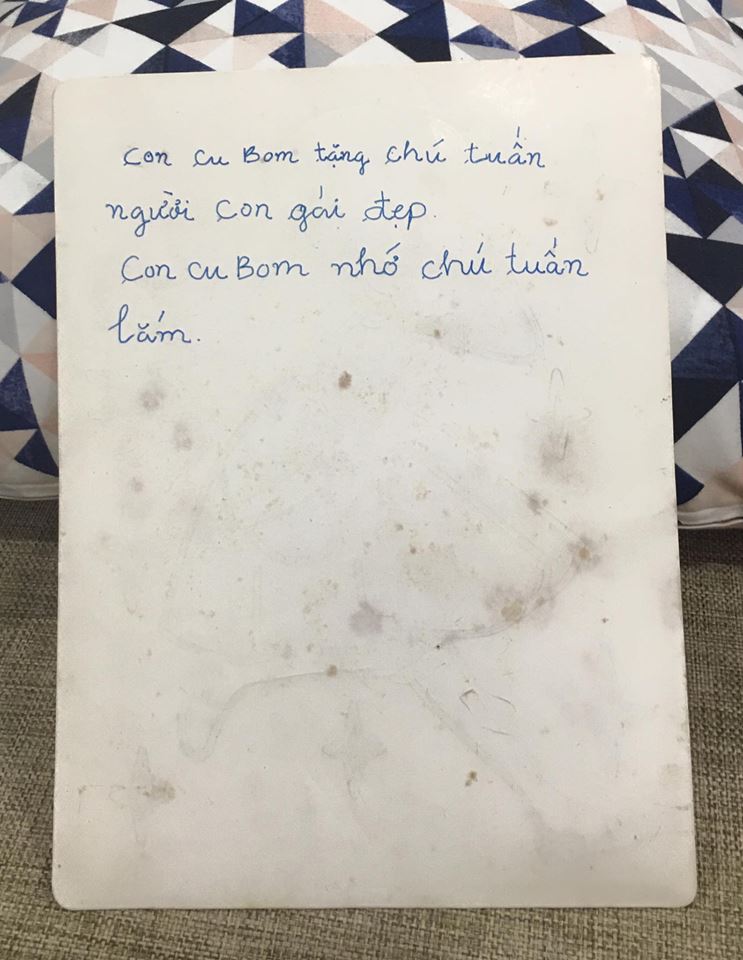 Con cu Bom tặng chú tuấn
người con gái đẹp.
Con cu Bom nhớ chú tuấn
lắm.